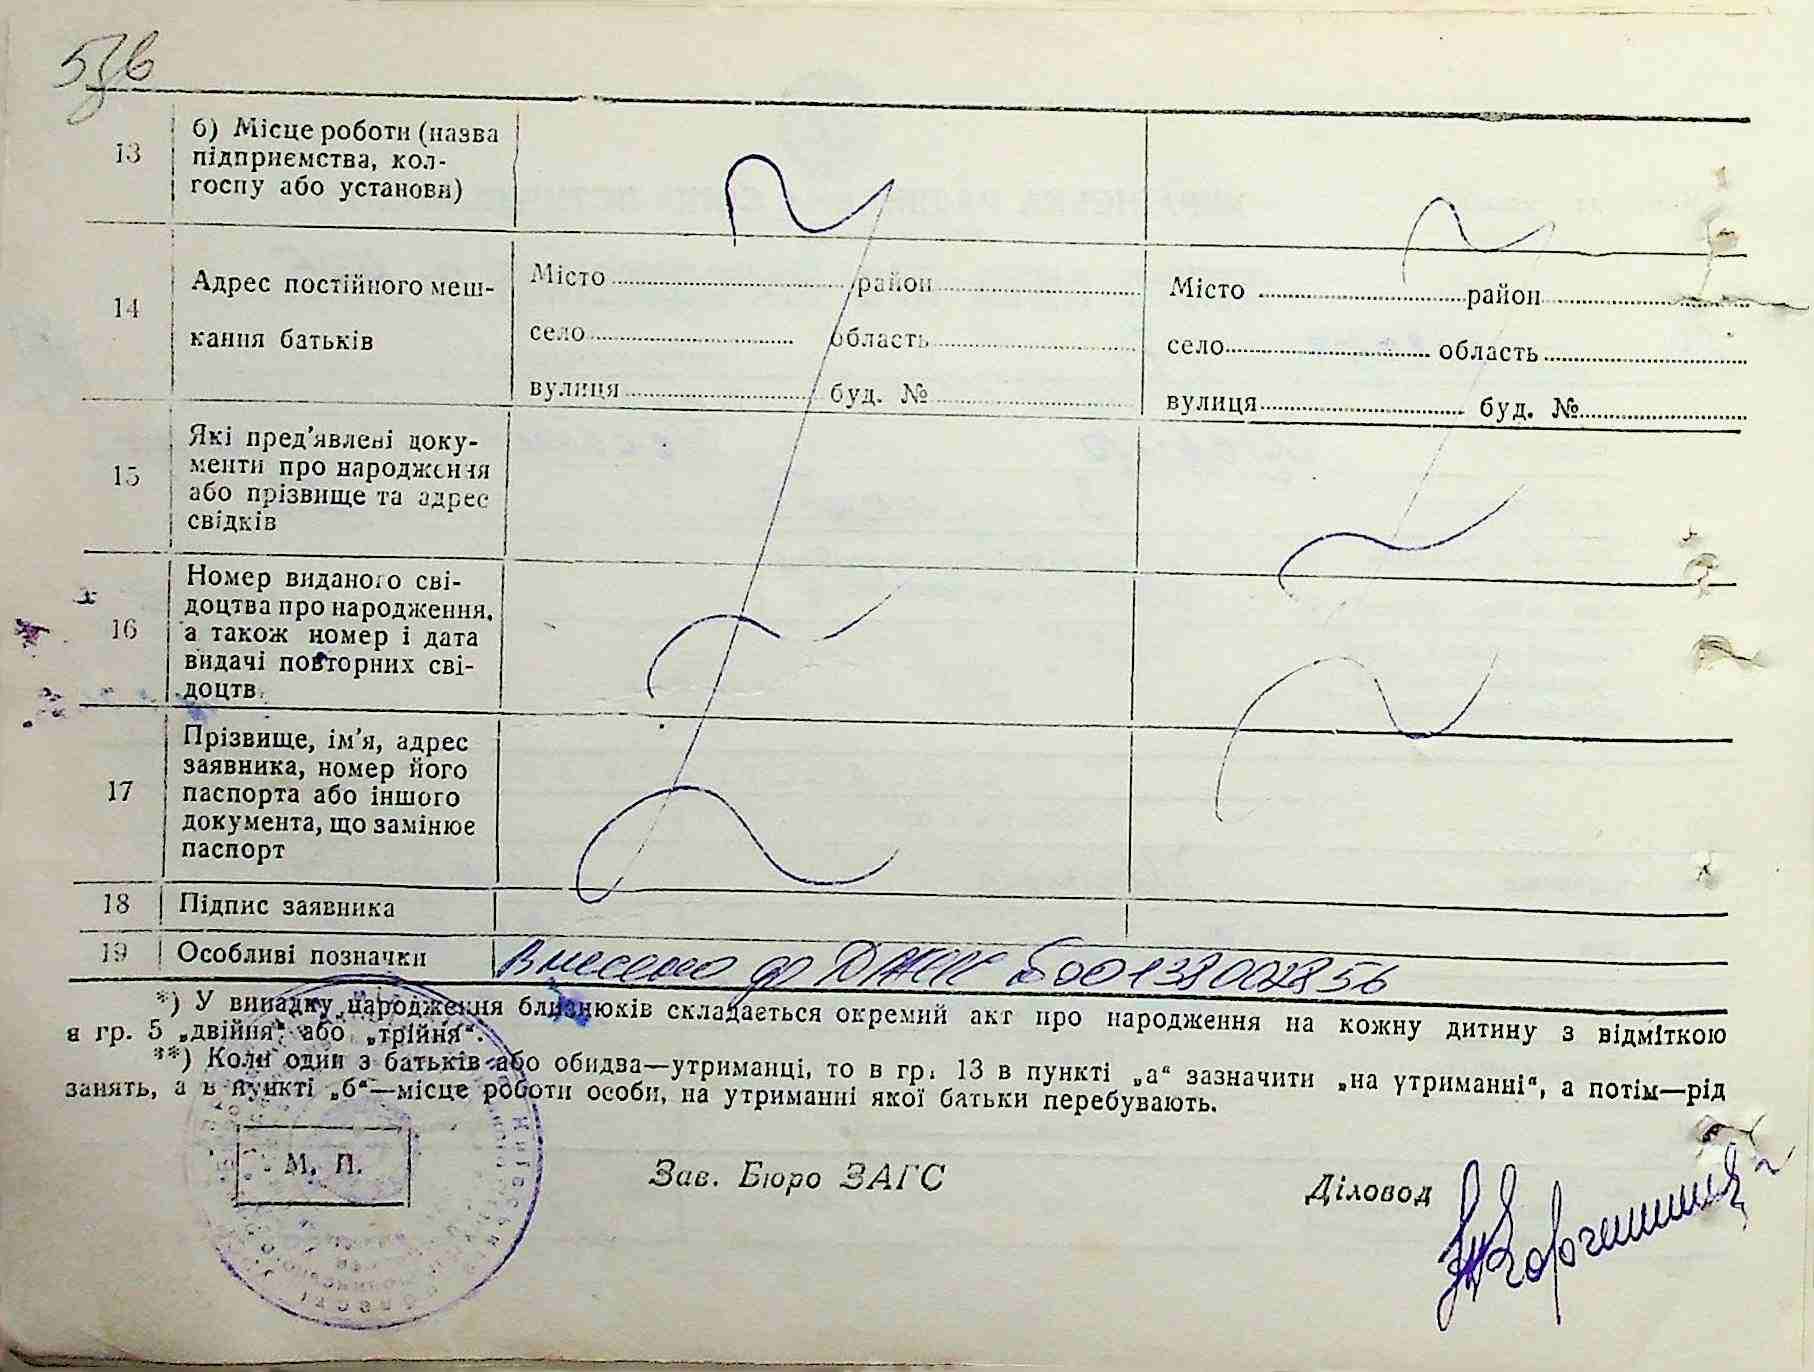 13
б) Місце роботи (назва
підприємства, кол-
госпу або установи)
14
Адрес постійного меш-
кання батьків
Місто район
село область
вулиця буд. №
Місто район
село область
вулиця буд. №
15
Які пред'явлені доку-
менти про народження
або прізвище та адрес
свідків
16
Номер виданого сві-
доцтва про народження,
а також номер і дата
видачі повторних сві-
доцтв.
17
Прізвище, ім'я, адрес
заявника, номер його
паспорта або іншого
документа, що замінює
паспорт
18 Підпис заявника
19 Особливі позначки Внесено до ДРАЦС 00138002856
*) У випадку народження близнюків складається окремий акт про народження на кожну дитину з відміткою
в гр. 5 „двійня“ або „трійня“.
**) Коли один з батьків або обидва—утриманці, то в гр. 13 в пункті „а“ зазначити „на утриманні“, а потім—рід
занять, а в пункті „б“—місце роботи особи, на утриманні якої батьки перебувають.
М. П.
Зав. Бюро ЗАГС
Діловод